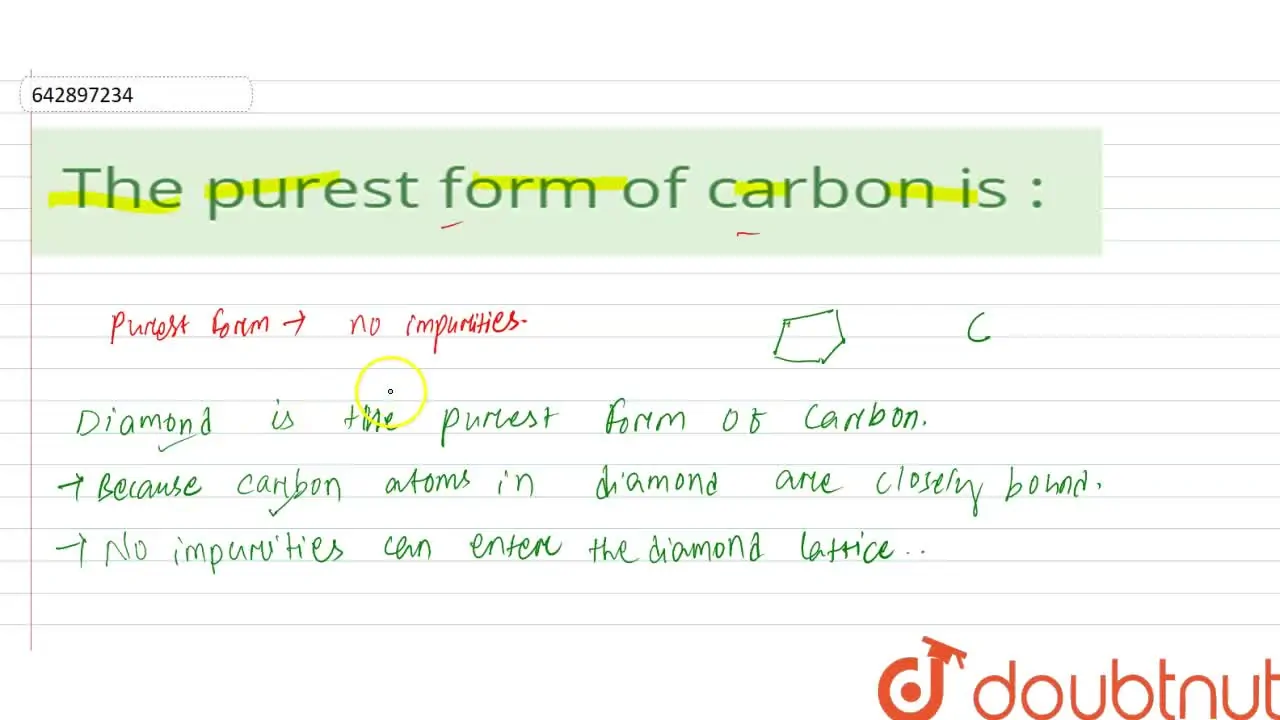 642897234
The purest form of carbon is :
Purest form → no impurities.
C
Diamond is the purest form of carbon.
→ Because carbon atoms in diamond are closely bound.
→ No impurities can enter the diamond lattice..
doubtnut